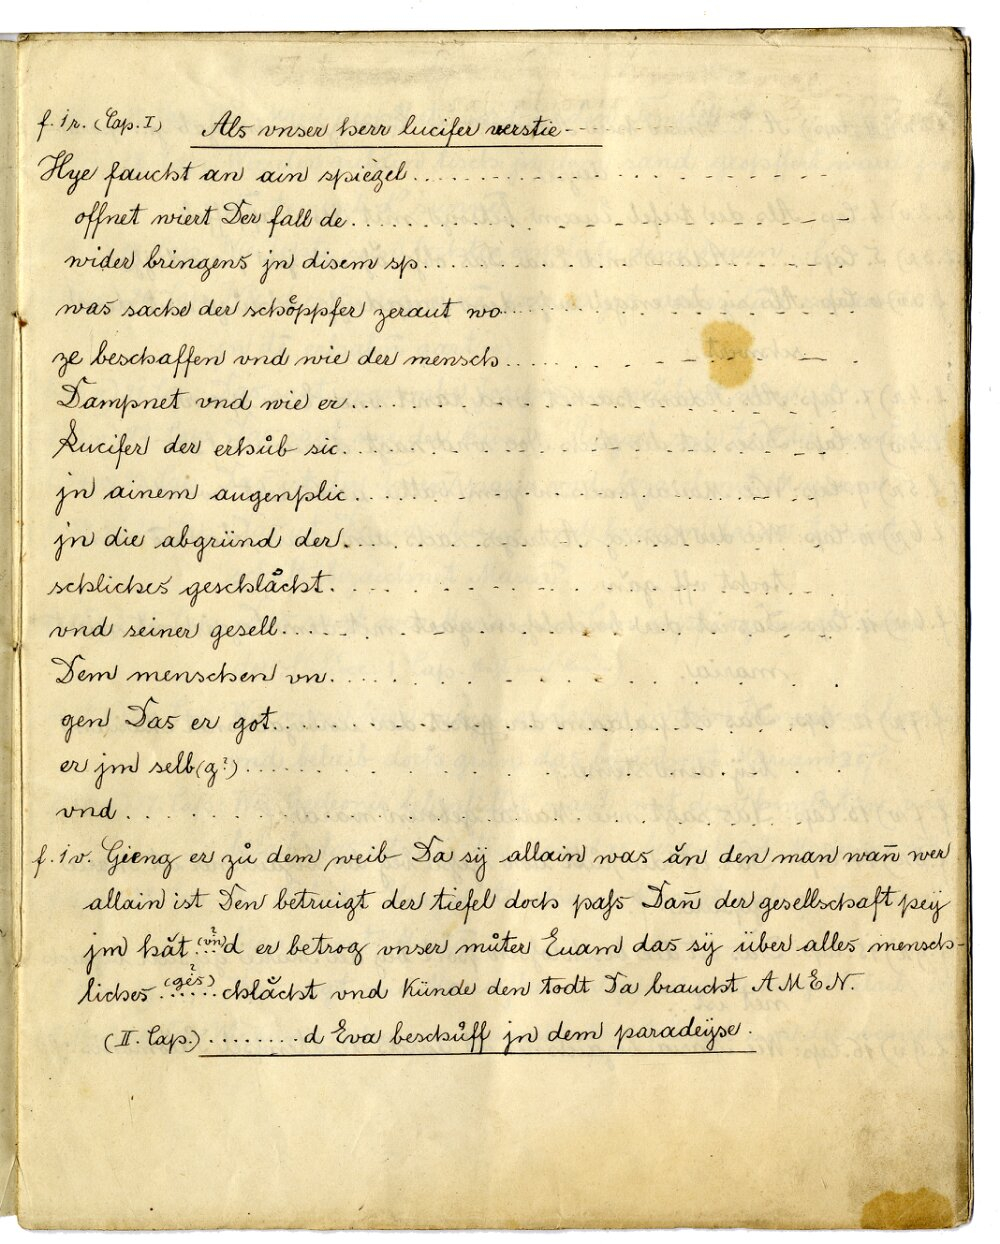 f. 1r. (Cap. I) Als vnser herr lucifer verstie- - -
Hye faucht an ain spiegel . . . . . . . . . .
offnet wiert Der fall de . . . . . . . . . .
wider bringens jn disem sp . . . . . . . . . .
was sache der schöppfer zeraut wo . . . . . . . . . .
ze beschaffen vnd wie der mensch . . . . . . . . . .
Dampnet vnd wie er . . . . . . . . . .
Lucifer der erhůb sic . . . . . . . . . .
jn ainem augenplic . . . . . . . . . .
jn die abgründ der . . . . . . . . . .
schliches geschlåcht . . . . . . . . . .
vnd seiner gesell . . . . . . . . . .
Dem menschen vn . . . . . . . . . .
gen Das er got . . . . . . . . . .
er jm selb (g?) . . . . . . . . . .
vnd . . . . . . . . . .
f. 1v. Gieng er zů dem weib Da sÿ allain was ån den man wan̄ wer
allain ist Den betruigt der tiefel doch pass Dan̄ der gesellschaft peÿ
jm håt (vn?) . . . d er betrog vnser můter Euam das sÿ über alles mensch-
liches (ges?) . . . . . chlåcht vnd künde den todt Da braucht AMEN.
(II. Cap.) . . . . . . . . d Eva beschůff jn dem paradeÿse.